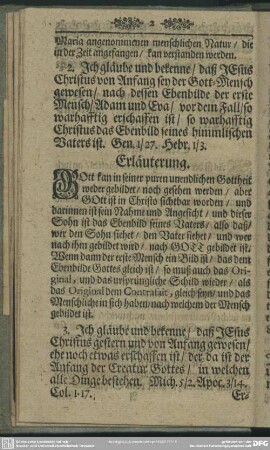 2
Maria angenommenen menschlichen Natur/ die
in der Zeit angefangen/ kan verstanden werden.
2. Jch gläube und bekenne/ daß JEsus
Christus von Anfang sey der Gott-Mensch
gewesen/ nach dessen Ebenbilde der erste
Mensch/ Adam und Eva/ vor dem Fall/ so
warhafftig erschaffen ist/ so warhafftig
Christus das Ebenbild seines himmlischen
Vaters ist. Gen. 1/27. Hebr. 1/3.
Erläuterung.
GOtt kan in seiner puren unendlichen Gottheit
weder gebildet/ noch gesehen werden/ aber
GOtt ist in Christo sichtbar worden/ und
darinnen ist sein Nahme und Angesicht/ und dieser
Sohn ist das Ebenbild seines Vaters/ also daß/
wer den Sohn siehet/ den Vater siehet/ und wer
nach ihm gebildet wird/ nach GOTT gebildet ist.
Wenn dann der erste Mensch ein Bild ist/ das dem
Ebenbilde Gottes gleich ist/ so muß auch das Ori-
ginal, und das ursprüngliche Schild wieder/ als
das Original dem Contrafait, gleich seyn/ und das
Menschliche in sich haben/ nach welchem der Mensch
gebildet ist.
3. Jch gläube und bekenne/ daß JEsus
Christus gestern und von Anfang gewesen/
ehe noch etwas erschaffen ist/ der da ist der
Anfang der Creatur Gottes/ in welchem
alle Dinge bestehen. Mich. 5/2. Apoc. 3/14.
Col. 1-17.
Er-